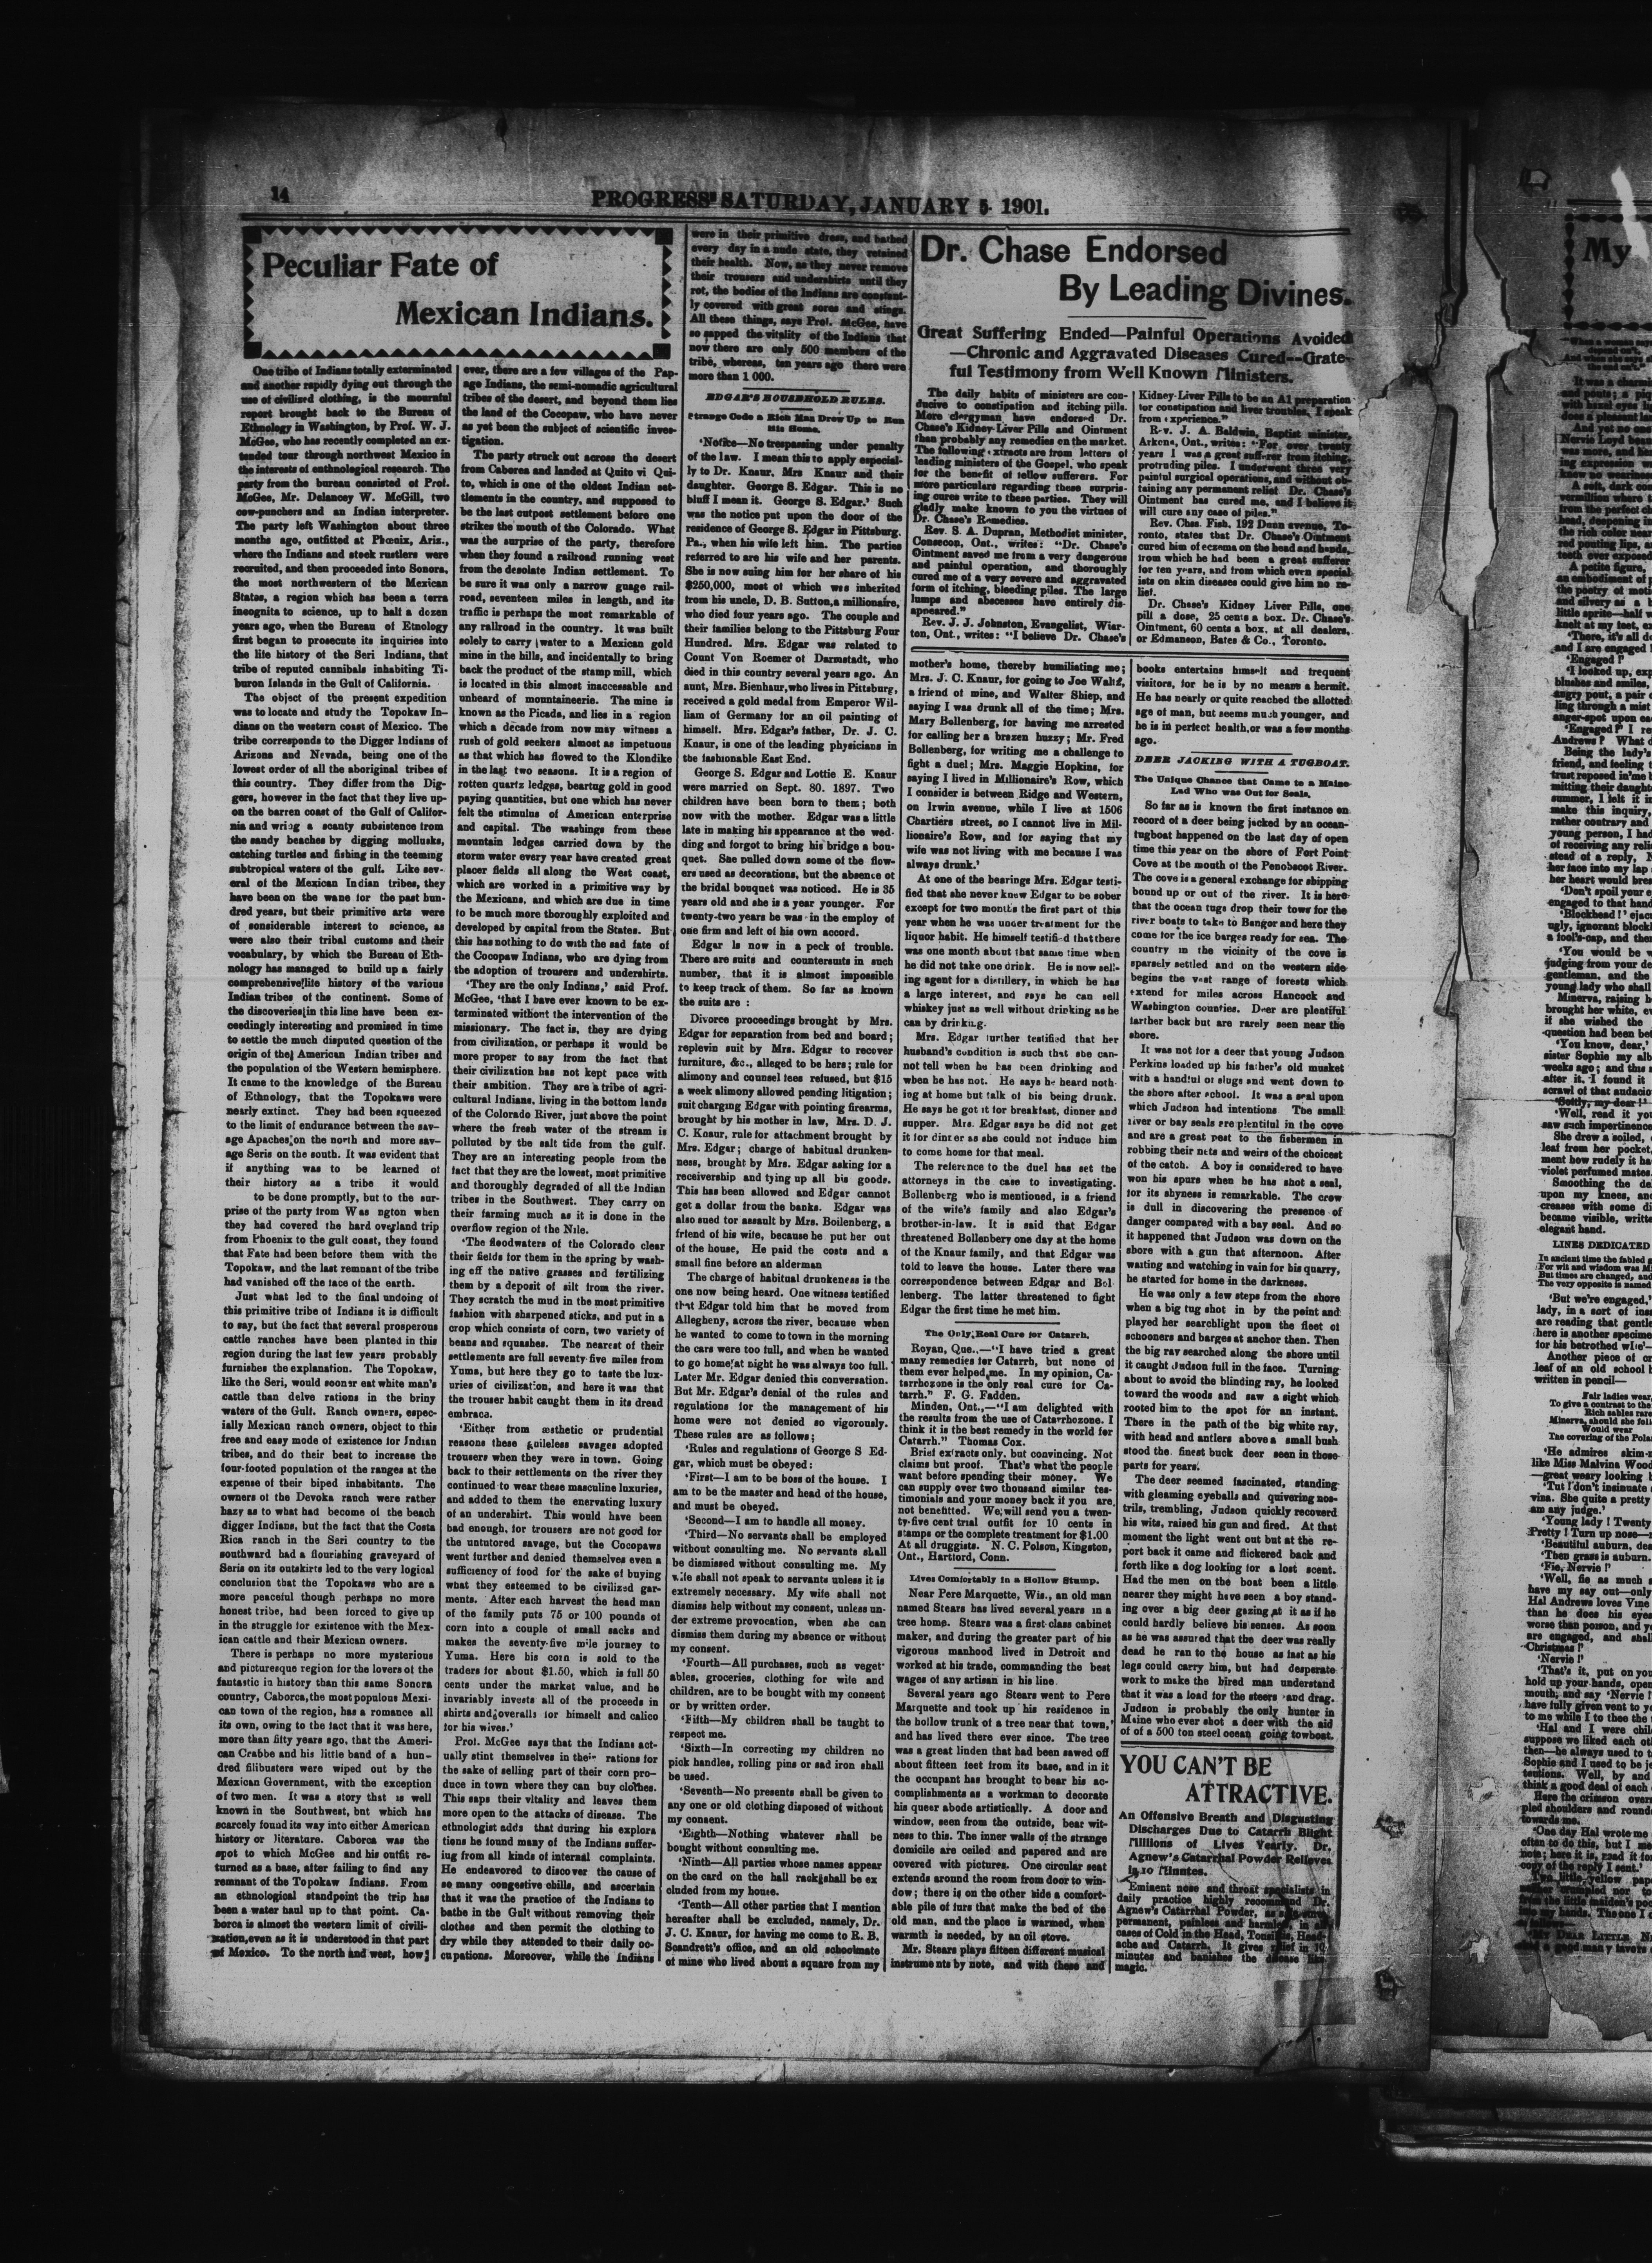 14
PROGRESS SATURDAY, JANUARY 5. 1901.
Peculiar Fate of
Mexican Indians.
One tribe of Indians totally exterminated
and another rapidly dying out through the
use of civilized clothing, is the mournful
report brought back to the Bureau of
Ethnology in Washington, by Prof. W. J.
McGee, who has recently completed an ex-
tended tour through northwest Mexico in
the interests of enthnological research. The
party from the bureau consisted of Prof.
McGee, Mr. Delancey W. McGill, two
cow-punchers and an Indian interpreter.
The party left Washington about three
months ago, outfitted at Phœnix, Ariz.,
where the Indians and stock rustlers were
recruited, and then proceeded into Sonora,
the most northwestern of the Mexican
States, a region which has been a terra
incognita to science, up to half a dozen
years ago, when the Bureau of Etnology
first began to prosecute its inquiries into
the life history of the Seri Indians, that
tribe of reputed cannibals inhabiting Ti-
buron Islands in the Gulf of California.
The object of the present expedition
was to locate and study the Topokaw In-
dians on the western coast of Mexico. The
tribe corresponds to the Digger Indians of
Arizona and Nevada, being one of the
lowest order of all the aboriginal tribes of
this country. They differ from the Dig-
gers, however in the fact that they live up-
on the barren coast of the Gulf of Califor-
nia and wring a scanty subsistence from
the sandy beaches by digging mollusks,
catching turtles and fishing in the teeming
subtropical waters of the gulf. Like sev-
eral of the Mexican Indian tribes, they
have been on the wane for the past hun-
dred years, but their primitive arts were
of sonsiderable interest to science, as
were also their tribal customs and their
vocabulary, by which the Bureau of Eth-
nology has managed to build up a fairly
comprehensive life history of the various
Indian tribes of the continent. Some of
the discoveries in this line have been ex-
ceedingly interesting and promised in time
to settle the much disputed question of the
origin of the American Indian tribes and
the population of the Western hemisphere.
It came to the knowledge of the Bureau
of Ethnology, that the Topokaws were
nearly extinct. They had been squeezed
to the limit of endurance between the sav-
age Apaches on the north and more sav-
age Seris on the south. It was evident that
if anything was to be learned of
their history as a tribe it would
to be done promptly, but to the sur-
prise of the party from Was ngton when
they had covered the hard overland trip
from Phoenix to the gulf coast, they found
that Fate had been before them with the
Topokaw, and the last remnant of the tribe
had vanished off the face of the earth.
Just what led to the final undoing of
this primitive tribe of Indians it is difficult
to say, but the fact that several prosperous
cattle ranches have been planted in this
region during the last few years probably
furnishes the explanation. The Topokaw,
like the Seri, would sooner eat white man's
cattle than delve rations in the briny
waters of the Gulf. Ranch owners, espec-
ially Mexican ranch owners, object to this
free and easy mode of existence for Indian
tribes, and do their best to increase the
four-footed population of the ranges at the
expense of their biped inhabitants. The
owners of the Devoka ranch were rather
hazy as to what had become of the beach
digger Indians, but the fact that the Costa
Rica ranch in the Seri country to the
southward had a flourishing graveyard of
Seris on its outskirts led to the very logical
conclusion that the Topokaws who are a
more peaceful though perhaps no more
honest tribe, had been forced to give up
in the struggle for existence with the Mex-
ican cattle and their Mexican owners.
There is perhaps no more mysterious
and picturesque region for the lovers of the
fantastic in history than this same Sonora
country, Caborca, the most populous Mexi-
can town of the region, has a romance all
its own, owing to the fact that it was here,
more than fifty years ago, that the Ameri-
can Crabbe and his little band of a hun-
dred filibusters were wiped out by the
Mexican Government, with the exception
of two men. It was a story that is well
known in the Southwest, but which has
scarcely found its way into either American
history or literature. Caborca was the
spot to which McGee and his outfit re-
turned as a base, after failing to find any
remnant of the Topokaw Indians. From
an ethnological standpoint the trip has
been a water haul up to that point. Ca-
borca is almost the western limit of civili-
zation, even as it is understood in that part
of Mexico. To the north and west, how-
ever, there are a few villages of the Pap-
age Indians, the semi-nomadic agricultural
tribes of the desert, and beyond them lies
the land of the Cocopaw, who have never
as yet been the subject of scientific inves-
tigation.
The party struck out across the desert
from Caborea and landed at Quito vi Qui-
to, which is one of the oldest Indian set-
tlements in the country, and supposed to
be the last outpost settlement before one
strikes the mouth of the Colorado. What
was the surprise of the party, therefore
when they found a railroad running west
from the desolate Indian settlement. To
be sure it was only a narrow guage rail-
road, seventeen miles in length, and its
traffic is perhaps the most remarkable of
any railroad in the country. It was built
solely to carry water to a Mexican gold
mine in the hills, and incidentally to bring
back the product of the stamp mill, which
is located in this almost inaccessable and
unheard of mountaineerie. The mine is
known as the Picads, and lies in a region
which a decade from now may witness a
rush of gold seekers almost as impetuous
as that which has flowed to the Klondike
in the last two seasons. It is a region of
rotten quartz ledges, beartug gold in good
paying quantities, but one which has never
felt the stimulus of American enterprise
and capital. The washings from these
mountain ledges carried down by the
storm water every year have created great
placer fields all along the West coast,
which are worked in a primitive way by
the Mexicans, and which are due in time
to be much more thoroughly exploited and
developed by capital from the States. But
this has nothing to do with the sad fate of
the Cocopaw Indians, who are dying from
the adoption of trousers and undershirts.
'They are the only Indians,' said Prof.
McGee, 'that I have ever known to be ex-
terminated without the intervention of the
missionary. The fact is, they are dying
from civilization, or perhaps it would be
more proper to say from the fact that
their civilization has not kept pace with
their ambition. They are a tribe of agri-
cultural Indians, living in the bottom lands
of the Colorado River, just above the point
where the fresh water of the stream is
polluted by the salt tide from the gulf.
They are an interesting people from the
fact that they are the lowest, most primitive
and thoroughly degraded of all the Indian
tribes in the Southwest. They carry on
their farming much as it is done in the
overflow region of the Nile.
'The floodwaters of the Colorado clear
their fields for them in the spring by wash-
ing off the native grasses and fertilizing
them by a deposit of silt from the river.
They scratch the mud in the most primitive
fashion with sharpened sticks, and put in a
crop which consists of corn, two variety of
beans and squashes. The nearest of their
settlements are full seventy-five miles from
Yuma, but here they go to taste the lux-
uries of civilization, and here it was that
the trouser habit caught them in its dread
embraca.
'Either from æsthetic or prudential
reasons these guileless savages adopted
trousers when they were in town. Going
back to their settlements on the river they
continued to wear these masculine luxuries,
and added to them the enervating luxury
of an undershirt. This would have been
bad enough, for trousers are not good for
the untutored savage, but the Cocopaws
went further and denied themselves even a
sufficiency of food for the sake of buying
what they esteemed to be civilized gar-
ments. After each harvest the head man
of the family puts 75 or 100 pounds of
corn into a couple of small sacks and
makes the seventy-five mile journey to
Yuma. Here his corn is sold to the
traders for about $1.50, which is full 50
cents under the market value, and he
invariably invests all of the proceeds in
shirts and overalls for himself and calico
for his wives.'
Prof. McGee says that the Indians act-
ually stint themselves in their rations for
the sake of selling part of their corn pro-
duce in town where they can buy clothes.
This saps their vitality and leaves them
more open to the attacks of disease. The
ethnologist adds that during his explora
tions he found many of the Indians suffer-
iug from all kinds of internal complaints.
He endeavored to discover the cause of
so many congestive chills, and ascertain
that it was the practice of the Indians to
bathe in the Gulf without removing their
clothes and then permit the clothing to
dry while they attended to their daily oc-
cupations. Moreover, while the Indians
were in their primitive dress, and bathed
every day in a nude state, they retained
their health. Now, as they never remove
their trousers and undershirts until they
rot, the bodies of the Indians are constant-
ly covered with great sores and stings.
All these things, says Prof. McGee, have
so sapped the vitality of the Indians that
now there are only 500 members of the
tribe, whereas, ten years ago there were
more than 1 000.
EDGAR'S HOUSEHOLD RULES.
Strange Code a Rich Man Drew Up to Run
His Home.
'Notice—No trespassing under penalty
of the law. I mean this to apply especial-
ly to Dr. Knaur, Mrs Knaur and their
daughter. George S. Edgar. This is no
bluff I mean it. George S. Edgar.' Such
was the notice put upon the door of the
residence of George S. Edgar in Pittsburg.
Pa., when his wife left him. The parties
referred to are his wife and her parents.
She is now suing him for her share of his
$250,000, most of which was inherited
from his uncle, D. B. Sutton, a millionaire,
who died four years ago. The couple and
their families belong to the Pittsburg Four
Hundred. Mrs. Edgar was related to
Count Von Roemer of Darmstadt, who
died in this country several years ago. An
aunt, Mrs. Bienhaur, who lives in Pittsburg,
received a gold medal from Emperor Wil-
liam of Germany for an oil painting of
himself. Mrs. Edgar's father, Dr. J. C.
Knaur, is one of the leading physicians in
the fashionable East End.
George S. Edgar and Lottie E. Knaur
were married on Sept. 80. 1897. Two
children have been born to them; both
now with the mother. Edgar was a little
late in making his appearance at the wed-
ding and forgot to bring his bridge a bou-
quet. She pulled down some of the flow-
ers used as decorations, but the absence of
the bridal bouquet was noticed. He is 35
years old and she is a year younger. For
twenty-two years he was in the employ of
one firm and left of his own accord.
Edgar is now in a peck of trouble.
There are suits and countersuits in such
number, that it is almost impossible
to keep track of them. So far as known
the suits are :
Divorce proceedings brought by Mrs.
Edgar for separation from bed and board;
replevin suit by Mrs. Edgar to recover
furniture, &c., alleged to be hers; rule for
alimony and counsel fees refused, but $15
a week alimony allowed pending litigation;
suit charging Edgar with pointing firearms,
brought by his mother in law, Mrs. D. J.
C. Knaur, rule for attachment brought by
Mrs. Edgar; charge of habitual drunken-
ness, brought by Mrs. Edgar asking for a
receivership and tying up all his goods.
This has been allowed and Edgar cannot
get a dollar from the banks. Edgar was
also sued for assault by Mrs. Boilenberg, a
friend of his wife, because he put her out
of the house, He paid the costs and a
small fine before an alderman
The charge of habitual drunkeness is the
one now being heard. One witness testified
that Edgar told him that he moved from
Allegheny, across the river, because when
he wanted to come to town in the morning
the cars were too full, and when he wanted
to go home at night he was always too full.
Later Mr. Edgar denied this conversation.
But Mr. Edgar's denial of the rules and
regulations for the management of his
home were not denied so vigorously.
These rules are as follows;
'Rules and regulations of George S Ed-
gar, which must be obeyed:
'First—I am to be boss of the house. I
am to be the master and head of the house,
and must be obeyed.
'Second—I am to handle all money.
'Third—No servants shall be employed
without consulting me. No servants shall
be dismissed without consulting me. My
wife shall not speak to servants unless it is
extremely necessary. My wife shall not
dismiss help without my consent, unless un-
der extreme provocation, when she can
dismiss them during my absence or without
my consent.
'Fourth—All purchases, such as veget-
ables, groceries, clothing for wife and
children, are to be bought with my consent
or by written order.
'Fifth—My children shall be taught to
respect me.
'Sixth—In correcting my children no
pick handles, rolling pins or sad iron shall
be used.
'Seventh—No presents shall be given to
any one or old clothing disposed of without
my consent.
'Eighth—Nothing whatever shall be
bought without consulting me.
'Ninth—All parties whose names appear
on the card on the hall rack shall be ex
cluded from my house.
'Tenth—All other parties that I mention
hereafter shall be excluded, namely, Dr.
J. C. Knaur, for having me come to R. B.
Scandrett's office, and an old schoolmate
of mine who lived about a square from my
Dr. Chase Endorsed
By Leading Divines.
Great Suffering Ended—Painful Operations Avoided
—Chronic and Aggravated Diseases Cured--Grate-
ful Testimony from Well Known Ministers.
The daily habits of ministers are con-
ducive to constipation and itching pills.
More clergyman have endorsed Dr.
Chase's Kidney-Liver Pills and Ointment
than probably any remedies on the market.
The following extracts are from letters of
leading ministers of the Gospel, who speak
for the benefit of fellow sufferers. For
more particulars regarding these surpris-
ing cures write to these parties. They will
gladly make known to you the virtues of
Dr. Chase's Remedies.
Rev. S. A. Dupran, Methodist minister,
Consecon, Ont., writes: "Dr. Chase's
Ointment saved me from a very dangerous
and painful operation, and thoroughly
cured me of a very severe and aggravated
form of itching, bleeding piles. The large
lumps and abscesses have entirely dis-
appeared."
Rev. J. J. Johnston, Evangelist, Wiar-
ton, Ont., writes: "I believe Dr. Chase's
Kidney-Liver Pills to be an A1 preparation
for constipation and liver troubles. I speak
from experience."
Rev. J. A. Baldwin, Baptist minister,
Arkena, Ont., writes: "For over twenty
years I was a great sufferer from itching,
protruding piles. I underwent three very
painful surgical operations, and without ob-
taining any permanent relief. Dr. Chase's
Ointment has cured me, and I believe it
will cure any case of piles."
Rev. Chas. Fish, 192 Dunn avenue, To-
ronto, states that Dr. Chase's Ointment
cured him of eczema on the head and hands,
from which he had been a great sufferer
for ten years, and from which even special-
ists on skin diseases could give him no re-
lief.
Dr. Chase's Kidney Liver Pills, one
pill a dose, 25 cents a box. Dr. Chase's
Ointment, 60 cents a box. at all dealers,
or Edmanson, Bates & Co., Toronto.
mother's home, thereby humiliating me;
Mrs. J. C. Knaur, for going to Joe Waltz,
a friend of mine, and Walter Shiep, and
saying I was drunk all of the time; Mrs.
Mary Bollenberg, for having me arrested
for calling her a brazen huzzy; Mr. Fred
Bollenberg, for writing me a challenge to
fight a duel; Mrs. Maggie Hopkins, for
saying I lived in Millionaire's Row, which
I consider is between Ridge and Western,
on Irwin avenue, while I live at 1506
Chartiers street, so I cannot live in Mil-
lionaire's Row, and for saying that my
wife was not living with me because I was
always drunk.'
At one of the hearings Mrs. Edgar testi-
fied that she never knew Edgar to be sober
except for two months the first part of this
year when he was under treatment for the
liquor habit. He himself testified that there
was one month about that same time when
he did not take one drink. He is now sell-
ing agent for a distillery, in which he has
a large interest, and says he can sell
whiskey just as well without drinking as he
can by drinking.
Mrs. Edgar further testified that her
husband's condition is such that she can-
not tell when he has been drinking and
when he has not. He says he heard noth-
ing at home but talk of his being drunk.
He says he got it for breakfast, dinner and
supper. Mrs. Edgar says he did not get
it for dinner as she could not induce him
to come home for that meal.
The reference to the duel has set the
attorneys in the case to investigating.
Bollenberg who is mentioned, is a friend
of the wife's family and also Edgar's
brother-in-law. It is said that Edgar
threatened Bollenbery one day at the home
of the Knaur family, and that Edgar was
told to leave the house. Later there was
correspondence between Edgar and Bol-
lenberg. The latter threatened to fight
Edgar the first time he met him.
The Only Real Cure for Catarrh.
Royan, Que.,—"I have tried a great
many remedies for Catarrh, but none of
them ever helped me. In my opinion, Ca-
tarrhozone is the only real cure for Ca-
tarrh." F. G. Fadden.
Minden, Ont.,—"I am delighted with
the results from the use of Catarrhozone. I
think it is the best remedy in the world for
Catarrh." Thomas Cox.
Brief extracts only, but convincing. Not
claims but proof. That's what the people
want before spending their money. We
can supply over two thousand similar tes-
timonials and your money back if you are
not benefitted. We will send you a twen-
ty-five cent trial outfit for 10 cents in
stamps or the complete treatment for $1.00
At all druggists. N. C. Polson, Kingston,
Ont., Hartford, Conn.
Lives Comfortably in a Hollow Stump.
Near Pere Marquette, Wis., an old man
named Stears has lived several years in a
tree home. Stears was a first class cabinet
maker, and during the greater part of his
vigorous manhood lived in Detroit and
worked at his trade, commanding the best
wages of any artisan in his line.
Several years ago Stears went to Pere
Marquette and took up his residence in
the hollow trunk of a tree near that town,
and has lived there ever since. The tree
was a great linden that had been sawed off
about fifteen feet from its base, and in it
the occupant has brought to bear his ac-
complishments as a workman to decorate
his queer abode artistically. A door and
window, seen from the outside, bear wit-
ness to this. The inner walls of the strange
domicile are ceiled and papered and are
covered with pictures. One circular seat
extends around the room from door to win-
dow; there is on the other side a comfort-
able pile of furs that make the bed of the
old man, and the place is warmed, when
warmth is needed, by an oil stove.
Mr. Stears plays fifteen different musical
instruments by note, and with these and
books entertains himself and frequent
visitors, for he is by no means a hermit.
He has nearly or quite reached the allotted
age of man, but seems much younger, and
he is in perfect health, or was a few months
ago.
DEER JACKING WITH A TUGBOAT.
The Unique Chance that Came to a Maine
Lad Who was Out for Seals.
So far as is known the first instance on
record of a deer being jacked by an ocean-
tugboat happened on the last day of open
time this year on the shore of Fort Point
Cove at the mouth of the Penobscot River.
The cove is a general exchange for shipping
bound up or out of the river. It is here
that the ocean tugs drop their tows for the
river boats to take to Bangor and here they
come for the ice barges ready for sea. The
country in the vicinity of the cove is
sparsely settled and on the western side
begins the vast range of forests which
extend for miles across Hancock and
Washington counties. Deer are plentiful
farther back but are rarely seen near the
shore.
It was not for a deer that young Judson
Perkins loaded up his father's old musket
with a handful of slugs and went down to
the shore after school. It was a seal upon
which Judson had intentions The small
river or bay seals are plentiful in the cove
and are a great pest to the fishermen in
robbing their nets and weirs of the choicest
of the catch. A boy is considered to have
won his spurs when he has shot a seal,
for its shyness is remarkable. The crow
is dull in discovering the presence of
danger compared with a bay seal. And so
it happened that Judson was down on the
shore with a gun that afternoon. After
waiting and watching in vain for his quarry,
he started for home in the darkness.
He was only a few steps from the shore
when a big tug shot in by the point and
played her searchlight upon the fleet of
schooners and barges at anchor then. Then
the big ray searched along the shore until
it caught Judson full in the face. Turning
about to avoid the blinding ray, he looked
toward the woods and saw a sight which
rooted him to the spot for an instant.
There in the path of the big white ray,
with head and antlers above a small bush
stood the finest buck deer seen in those
parts for years.
The deer seemed fascinated, standing
with gleaming eyeballs and quivering nos-
trils, trembling, Judson quickly recovered
his wits, raised his gun and fired. At that
moment the light went out but at the re-
port back it came and flickered back and
forth like a dog looking for a lost scent.
Had the men on the boat been a little
nearer they might have seen a boy stand-
ing over a big deer gazing at it as if he
could hardly believe his senses. As soon
as he was assured that the deer was really
dead he ran to the house as fast as his
legs could carry him, but had desperate
work to make the hired man understand
that it was a load for the steers and drag.
Judson is probably the only hunter in
Maine who ever shot a deer with the aid
of of a 500 ton steel ocean going towboat.
YOU CAN'T BE
ATTRACTIVE.
An Offensive Breath and Disgusting
Discharges Due to Catarrh Blight
Millions of Lives Yearly. Dr.
Agnew's Catarrhal Powder Relieves
in 10 Minutes.
Eminent nose and throat specialists in
daily practice highly recommend Dr.
Agnew's Catarrhal Powder, as safe, sure,
permanent, painless and harmless, in all
cases of Cold in the Head, Tonsilitis, Head-
ache and Catarrh. It gives relief in 10
minutes and banishes the disease like
magic.
My